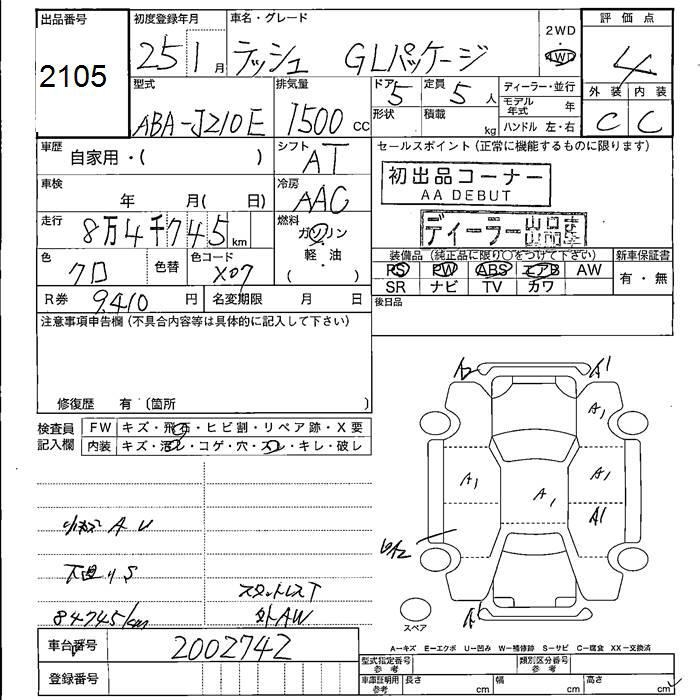 出品番号
2105
初度登録年月
25 1月
車名・グレード
ラッシュ GLパッケージ
2WD
・
4WD
評価点
4
外装 内装
C C
型式
ABA-J210E
排気量
1500 cc
ドア
5
定員
5人
形状
積載
kg
ディーラー・並行
モデル年式 年
ハンドル 左・右
車歴
自家用・( )
シフト
AT
セールスポイント(正常に機能するものに限ります)
初出品コーナー
AA DEBUT
ディーラー
車検
年 月( 日)
冷房
AAC
走行
8万4千745km
燃料
ガソリン
軽・油
( )
色
クロ
色替
色コード
X07
R券 9,410 円
名変期限 月 日
装備品(純正品に限り○をつけて下さい)
PS PW ABS エアB AW
SR ナビ TV カワ
新車保証書
有・無
後日品
注意事項申告欄(不具合内容等は具体的に記入して下さい)
修復歴 有 (箇所 )
検査員記入欄
FW キズ・飛石・ヒビ割・リペア跡・X要
内装 キズ・汚レ・コゲ・穴・スレ・キレ・破レ
小キズ A U
下廻り S
84745km
スタットレスT
外AW
A2
A1
A1
A1
A1
A1
A1
スペア
A-キズ E-エクボ U-凹み W-補修跡 S-サビ C-腐食 XX-交換済
車台番号
2002742
登録番号
型式指定番号 参考
類別区分番号 参考
車庫証明用 参考
長さ cm
幅 cm
高さ cm